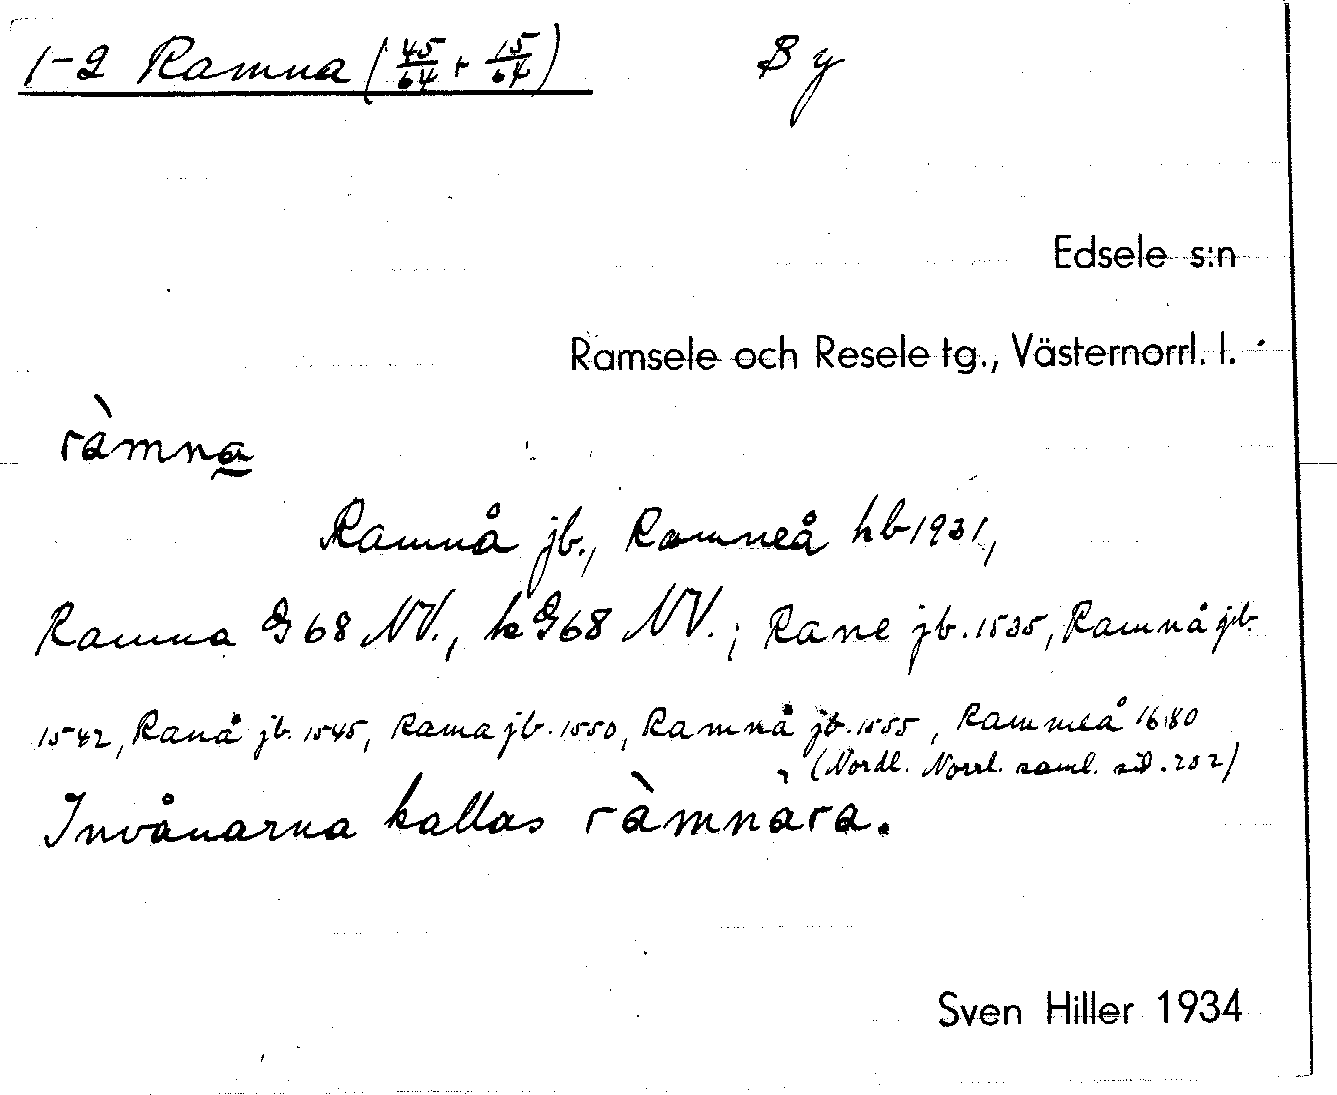 1-2 Ramna (45/64 + 15/64) By
Edsele s:n
Ramsele och Resele tg., Västernorrl. l.
ràmna
Ramnå jb., Ramneå hb 1931,
Ramna G 68 NV., k G68 NV.; Rane jb. 1535, Ramnå jb.
1542, Ranå jb. 1545, Rama jb. 1550, Ramnå jb. 1555, Rammeå 1680
(Nordl. Norrl. saml. sid. 202)
Invånarna kallas ràmnara.
Sven Hiller 1934